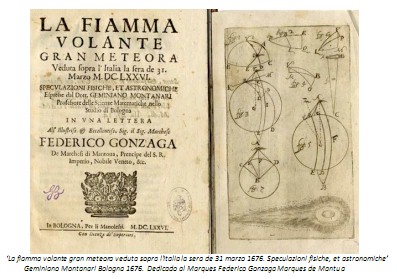 LA FIAMMA
VOLANTE
GRAN METEORA
Veduta sopra l'Italia la sera de 31.
Marzo M DC LXXVI.
SPECULAZIONI FISICHE, ET ASTRONOMICHE
Espresse dal Dott. GEMINIANO MONTANARI
Professore delle Scienze Matematiche nello
Studio di Bologna
IN VNA LETTERA
All' Illustriss. & Eccellentiss. Sig. il Sig. Marchese
FEDERICO GONZAGA
De Marchesi di Mantova, Prencipe del S. R.
Imperio, Nobile Veneto, &c.
In BOLOGNA, Per li Manolessi. M. DC. LXXVI.
Con licenza de' Superiori.
"La fiamma volante gran meteora veduta sopra l'Italia la sera de 31 marzo 1676. Speculazioni fisiche, et astronomiche"
Geminiano Montanari Bologna 1676. Dedicado al Marques Federico Gonzaga Marques de Mantua